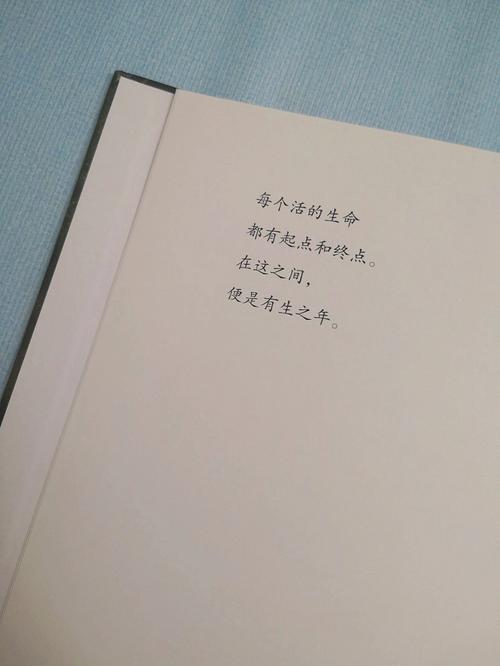 每个活的生命
都有起点和终点。
在这之间，
便是有生之年。